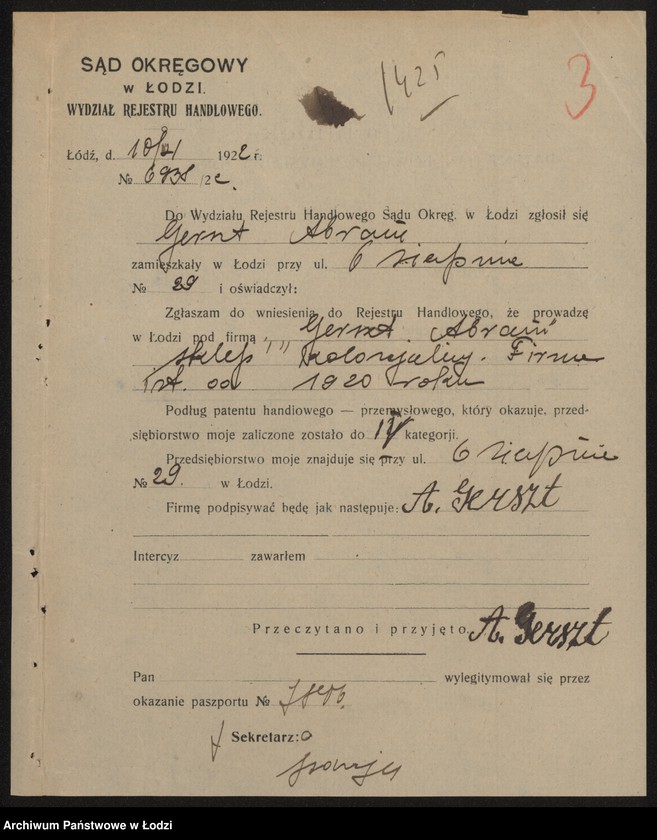 1425
3
SĄD OKRĘGOWY
w ŁODZI.
WYDZIAŁ REJESTRU HANDLOWEGO.
Łódź, d. 1922 r.
№ /22.
Do Wydziału Rejestru Handlowego Sądu Okręg. w Łodzi zgłosił się
Gerszt Abram
zamieszkały w Łodzi przy ul. 6 sierpnia
№ 29 i oświadczył:
Zgłaszam do wniesienia do Rejestru Handlowego, że prowadzę
w Łodzi pod firmą „Gerszt Abram"
sklep kolonjalny. Firma
ist. od 1920 roku
Podług patentu handlowego — przemysłowego, który okazuje, przed-
siębiorstwo moje zaliczone zostało do kategorji.
Przedsiębiorstwo moje znajduje się przy ul. 6 sierpnia
№ 29. w Łodzi.
Firmę podpisywać będę jak następuje: A. Gerszt
Intercyz zawarłem
Przeczytano i przyjęto A. Gerszt
Pan wylegitymował się przez
okazanie paszportu №
Sekretarz:
Archiwum Państwowe w Łodzi